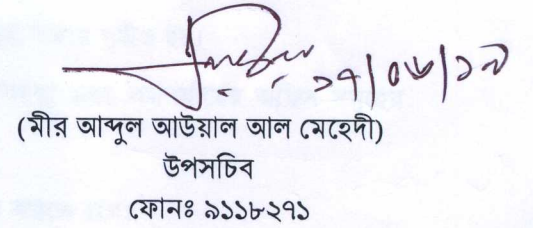 ১৭/০৬/১৯
(মীর আব্দুল আউয়াল আল মেহেদী)
উপসচিব
ফোনঃ ৯১১৮২৭১